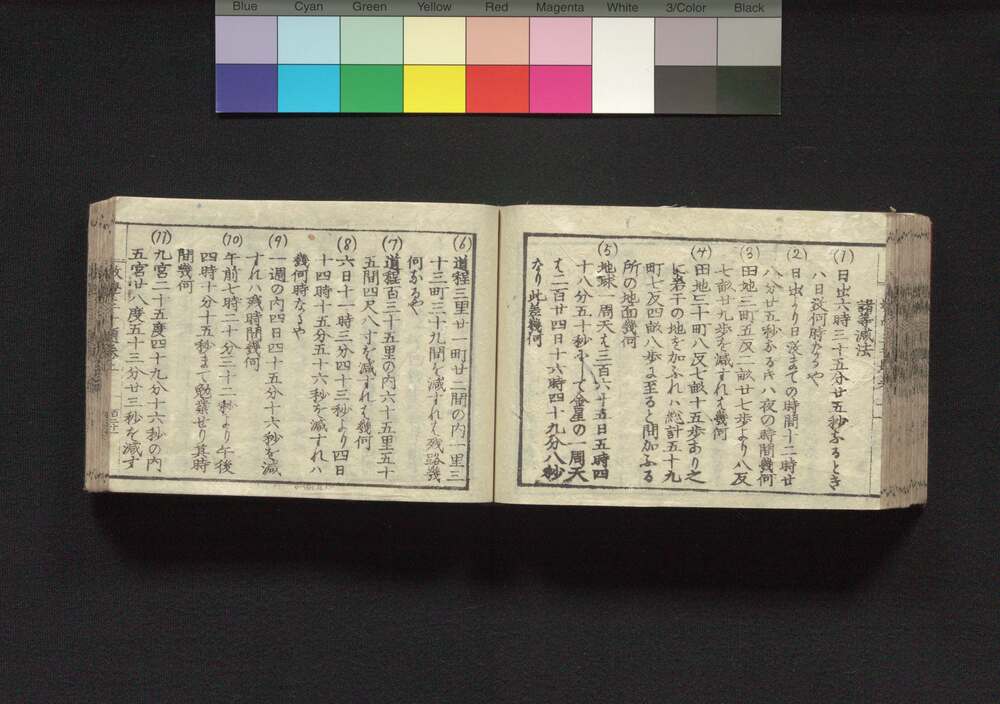 Blue Cyan Green Yellow Red Magenta White 3/Color Black
諸等減法
(1) 日出六時三十五分廿五秒なるとき
ハ日没何時なるや
(2) 日出より日没までの時間十二時廿
八分廿五秒なる片ハ夜の時間幾何
(3) 田地三町五反二畝廿七歩より八反
七畝廿九歩を減ずれば幾何
(4) 田地三十町八反七畝十五歩あり之
に若干の地を加ふれハ総計五十九
町七反四畝八歩に至ると問加ふる
所の地面幾何
(5) 地球一周天は三百六十五日五時四
十八分五十秒にして金星の一周天
は二百廿四日十六時四十九分八秒
なり此差幾何
(6) 道程三里廿一町廿二間の内一里三
十三町三十九間を減ずれば残路幾
何なるや
(7) 道程百三十五里の内六十五里五十
五間四尺八寸を減ずれば幾何
(8) 六日十一時三分四十三秒より四日
十四時十五分五十六秒を減ずれハ
幾何時なるや
(9) 一週の内四日四十五分十六秒を減
ずれハ残時間幾何
(10) 午前七時二十分三十二秒より午後
四時十分十五秒まで勉業せり其時
間幾何
(11) 九宮二十五度四十九分十六秒の内、
五宮廿八度五十三分廿三秒を減ず